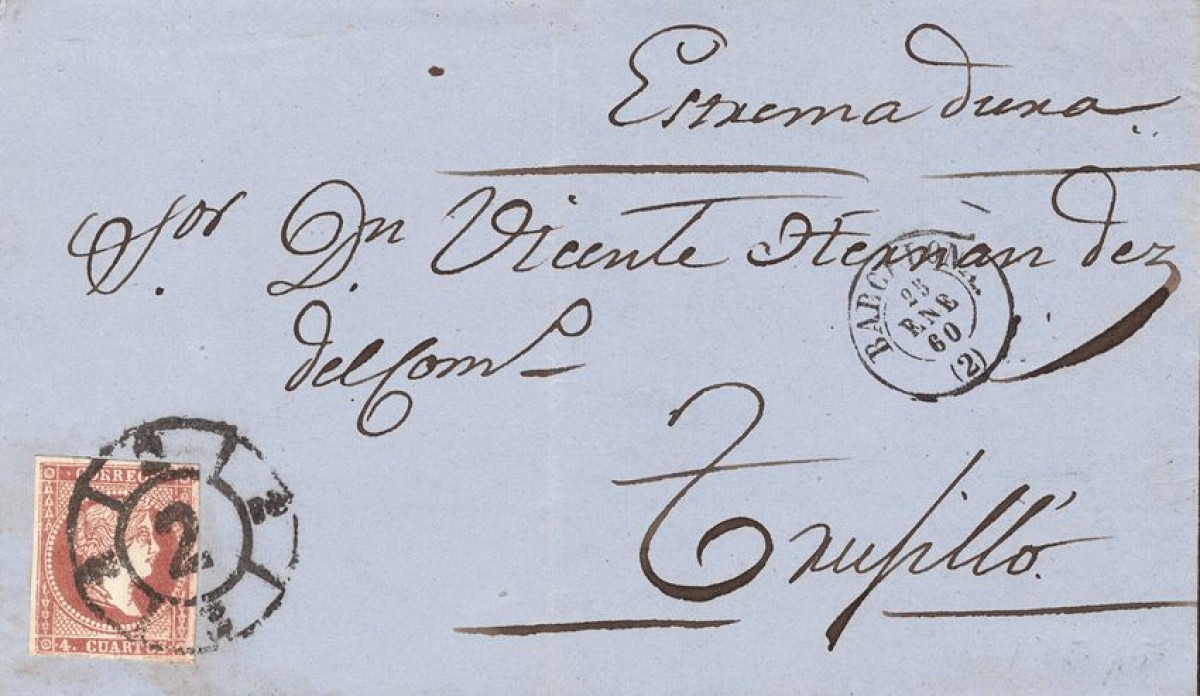 Estremadura
Sor. Dn. Vicente Hernandez
del Como.
BARCELONA
25
ENE
60
(2)
Trujillo.
CORREOS
2
4. CUARTOS